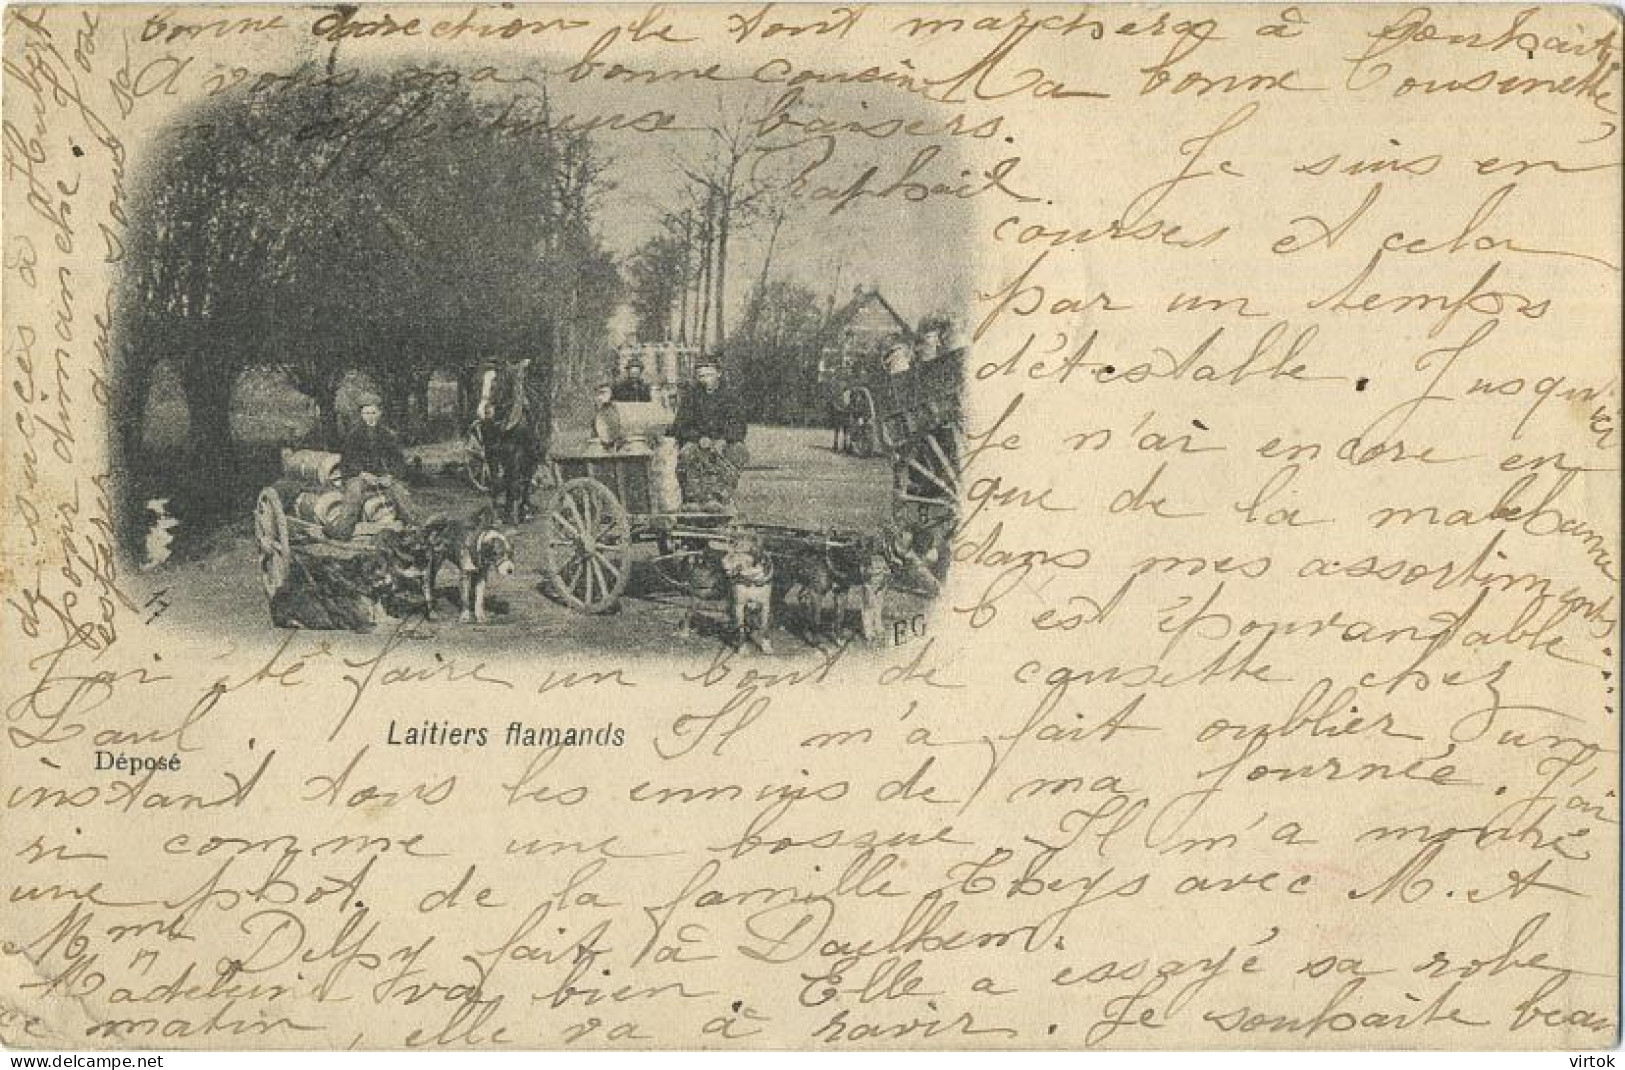 Je suis en
courses et cela
par un temps
détestable. Jusqu'ici
je n'ai encore en
que de la malchance
dans mes assortiments
C'est épouvantable.....
J'ai été faire un bout de causette chez
Paul. Il m'a fait oublier un
instant tous les ennuis de ma journée. J'ai
ri comme une bossue. Il m'a montré
une phot. de la famille Theys avec M. et
Mme Delpy fait à Daelhem.
Madeleine va bien. Elle a essayé sa robe
ce matin, elle va à ravir. Je souhaite beau
de succès à Hubert
pour dimanche. J'ose
espérer que sous sa
bonne direction le tout marchera à souhait
A vous ma bonne cousine, Ma bonne Cousinette
affectueux baisers.
Raphaël
Laitiers flamands
Déposé
EG
virtok